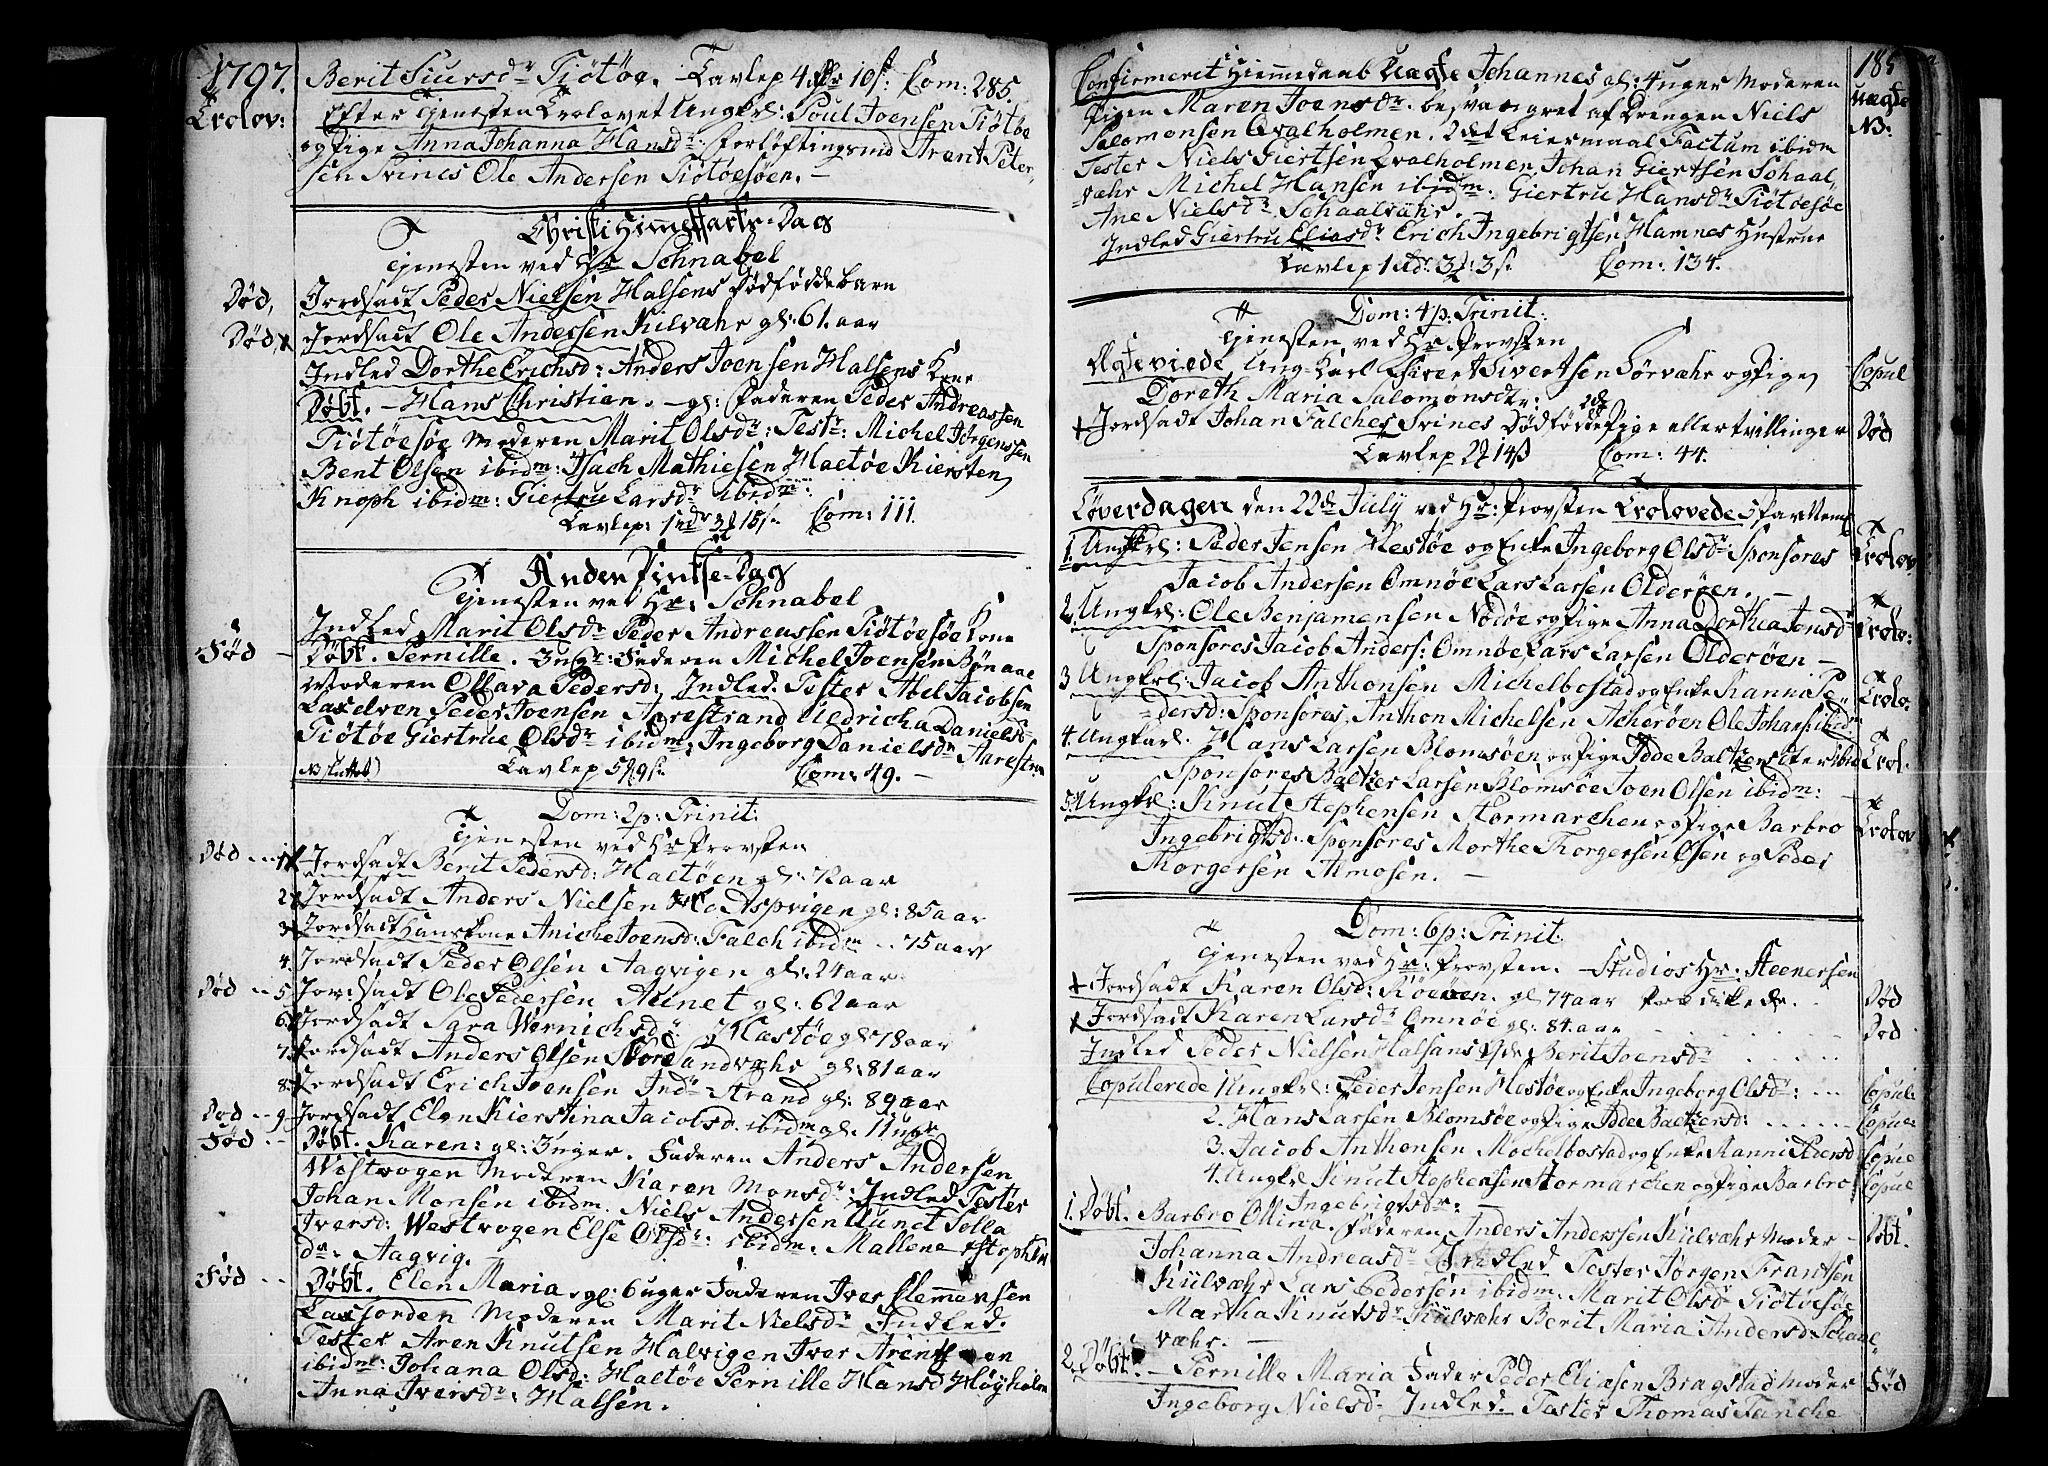 1797.
Berit Siursdr Tiötöe. Tavlep 4 10 s: Com: 285.
Trolov:
Efter Tienesten Trolovet Ungkrl: Poul Joensen Tiötöe
og Pige Anna Johanna Hansdr: forløftingsmd Arent Peter-
sen Svines Ole Andersen Tiötöesöen. —
Christi Himmelfarts-Dag
Tienesten ved Hr Schnabel
Død, Jordsadt Peder Nielsen Halsens Dødföddebarn
Død, Jordsadt Ole Andersen Kilvahr gl: 61. aar
Indled Dorthe Erichsd: Anders Joensen Halsens Kone
Døbt. — Hans Christian. — gl: Faderen Peder Andreassen
Tiötöesöe Moderen Marit Olsdr: Testr: Michel Jørgensen
Bent Olsen ibidm: Isach Mathiesen Haltöe Kiersten
Knoph ibidm: Giertru Larsdr ibidm:
Tavlep: 1 3 15 s. Com: 111.
Anden Pintse-Dag
Tienesten ved Hr: Schnabel
Indled Marit Olsdr Peder Andreassen Tiötöesöe Kone
Fød Døbt. Pernille. Faderen Michel Joensen Bönaae
Moderen Ollava Pedersd: Indled. Tester Abel Jacobsen
Laxelven Peder Joensen Aarestrand Uldricha Danielsdr
Tiötöe Giertrue Olsdr ibidm: Ingeborg Danielsdr Aarestran
Tavlep 5 9 s. Com: 49. —
Dom: 2 p: Trinit:
Tienesten ved Hr Provsten
Død 1 Jordsadt Berit Pedersd: Haltöen gl: 72 aar
2 Jordsadt Anders Nielsen Aspvigen gl: 85 aar
3 Jordsadt Hans Kone Aniche Joensd: Falch ibidm .. 75 aar
4. Jordsadt Peder Olsen Aagvigen gl: 24 aar
Død .. 5 Jordsadt Ole Pedersen gl: 62 aar
6 Jordsadt Sara Wernichsdr Hastöe gl 78 aar
7. Jordsadt Anders Olsen Store Sandvahr gl: 81 aar
8 Jordsadt Erich Joensen Indr Strand gl: 89 aar
Død .. 9 Jordsadt Elen Kierstina Jacobsd. ibidm gl. 11 ugr
Fød .. Døbt. Karen: gl: 3 uger. Faderen Anders Andersen
Westvogen Moderen Karen Monsdr: Indled Tester
Johan Monsen ibidm. Niels Andersen
Iversd: Westvogen Else Olsdr: ibidm: Mallene Stophen
dr. Aagvig.
Fød .. Døbt. Elen Maria gl: 6 uger Faderen Iver Clemmensen
Laxfjorden Moderen Marit Nielsdr Indled.
Tester Aren Knutsen Halvigen Iver Arentzen
ibidm: Johana Olsd: Haltöe Pernille Hansd Høyholm
Anna Iversdr: Halsen.
185
Confirmerit Hiemmedaab Uægte Johannes gl: 4 uger Moderen
uægte
Pigen Maren Joensdr. besvangret af Drengen Niels
NB:
Salomonsen Qvalholmen. 2det Leiermaal Factum ibidm
Tester Niels Giertsen Qvalholmen, Johan Giertsen Schaal-
væhr Michel Hansen ibidm: Giertru Hansdr Tiötöesöe
Ane Nielsdr Schaalvahr.
Indled Giertru Eliasdr Erich Ingebrigtsen Hamnes Hustrue
Tavlep 1 3 3 s. Com: 134.
Dom: 4 p: Trinit:
Tienesten ved Hr Provsten
Ægteviede Ung-Karl Sivert Sivertsen Sörvahr og Pige Copul
Doreth Maria Salomonsdtr:
Jordsadt Johan Falches Svines 2de Dødfødde Pige eller tvillinger Død
Tavlep 2 14 s Com: 44.
Löverdagen den 22de July ved Hr: Provsten Trolovede 5 Par Nemb
1. Ungkrl: Peder Jensen Hestöe og Enke Ingeborg Olsdr: Sponsores Trolov
Jacob Andersen Omnöe Lars Larsen Olderöen. —
2. Ungkrl: Ole Benjamensen Nödöe og Pige Anna Dorthea Jonsdr Trolo:
Sponsores Jacob Anders: Omnöe, Lars Larsen Olderöen —
3 Ungkrl: Jacob Anthonsen Michelbostad og Enke Ranni Pe- Trolo:
dersd: Sponsores, Anthon Michelsen Acheröen Ole Johans: ibidm
4. Ungkarl. Hans Larsen Blomsöen og Pige Idde Baltzersdter ibid Trol.
Sponsores Baltzer Larsen Blomsöe Joen Olsen ibidm:
5. Ungkrl: Knut Stephensen Stormarchen og Pige Barbro Trolov
Ingebrigtsd: Sponsores Morthe Thorgersen Olsen og Peder
Thorgersen Almosen. —
Dom: 6 p: Trinit:
Tienesten ved Hr: Provsten. — Studios Hr. Steenersen
Jordsadt Karen Olsd: gl 74 aar Prædikede. Død
Jordsadt Karen Larsdr Omnöe gl: 84. aar Død
Indled Peder Nielsen Halsens Berit Joensdr
Copulerede 1 Ungkrl: Peder Jensen Hestöe og Enke Ingeborg Olsdr: ... Copul:
2. Hans Larsen Blomsöe og Pige Idde Baltzersd: ...... Copul:
3. Jacob Anthonsen Mechelbostad og Enke Ranni Pedersd Copul
4. Ungkrl Knut Stephensen Stormarchen og Pige Barbro Copul
Ingebrigtsdr:
1. Døbt. Barbro Ollina. Faderen Anders Anderssen Kiilvahr Moder — Døbt.
Johanna Andreasdr Indled Tester Jørgen Frantsen
Kiilvahr Lars Pedersen ibidm: Marit Olsdr Tiötöesöe
Martha Knutsdr Kiilvahr Berit Maria Andersd: Schaal-
væhr. —
2. Døbt — Pernille Maria Fader Peder Eliasen Bragstad Moder Fød
Ingeborg Nielsd: Indled. Tester Thomas Tanche